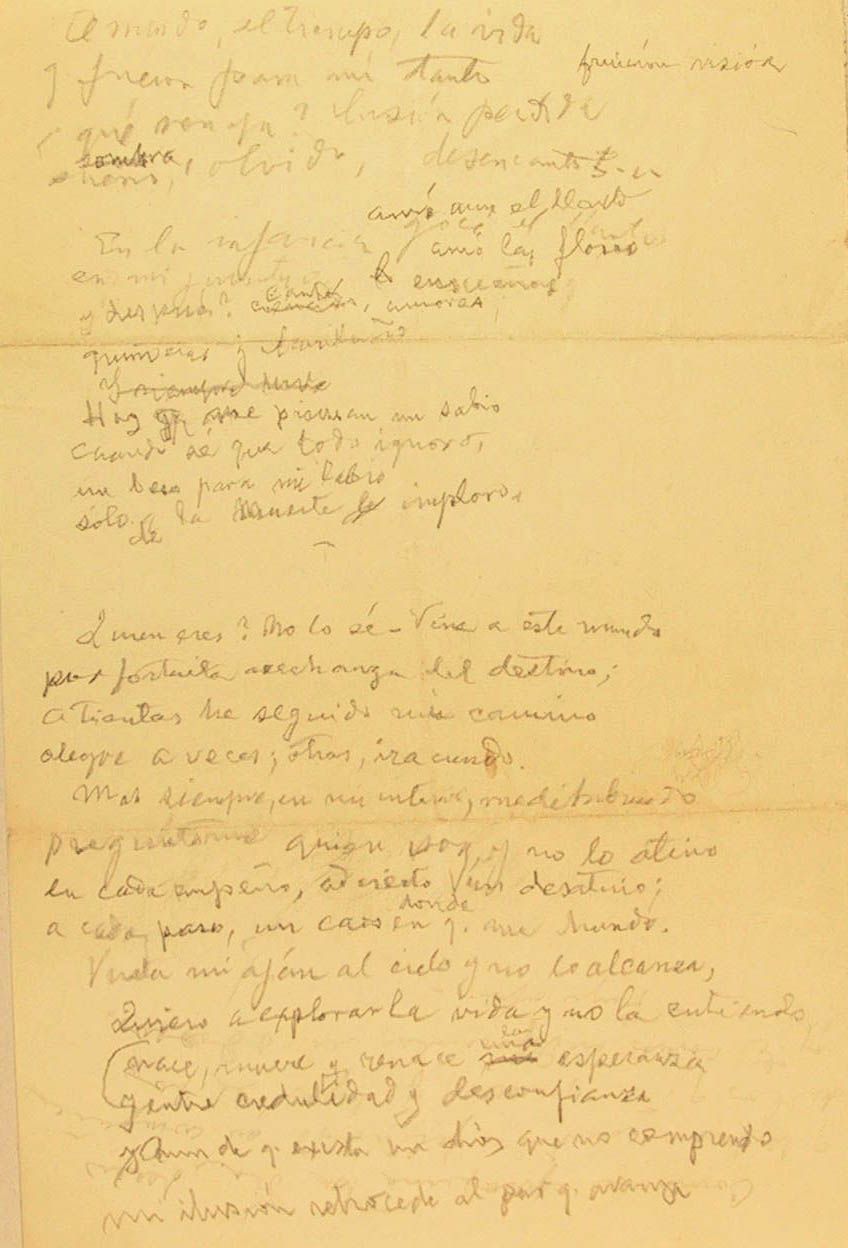 El mundo, el tiempo, la vida
y fueron para mi tanto
fruición visión
qué son ya? Ilusión perdida
sombra, olvido, desencanto
amó aun el llanto
En la infancia
amó las flores
en mi ensueños
y después? cantos, amores,
quimeras y
Y siempre
Hoy que me piensan un sabio
cuando sé que todo ignoro,
un beso para mi labio
sólo a la muerte le imploro.
de
Quien eres? No lo sé - Vine a este mundo
por fortuita asechanza del destino;
a tientas he seguido mi camino
alegre a veces; otras, iracundo.
Mas siempre, en mi interior, meditabundo
pregúntome quien soy, y no lo atino
en cada empeño, advierto un desatino;
donde
a cada paso, un caos en q. me hundo.
Vuela mi afán al cielo y no lo alcanza,
Quiero explorar la vida y no la entiendo,
la
una
nace, muere y renace esperanza
y entre credulidad y desconfianza
y Aun de q. exista un dios que no comprendo
mi ilusión retrocede al par q. avanza